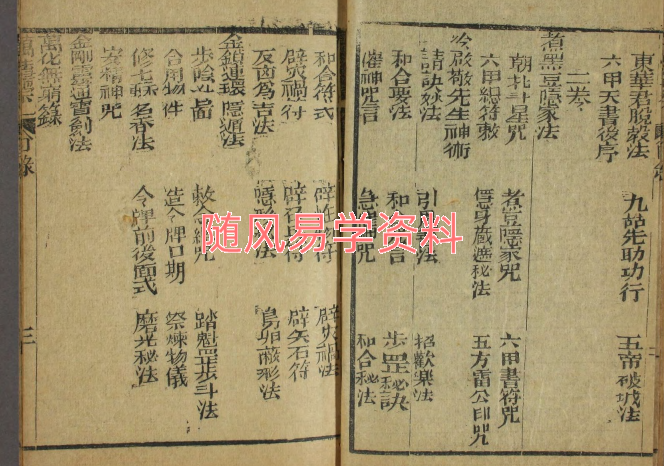 東華君脫殼法 九姑先助功行 五帝破城法
六甲天書後序
二卷
煮黑豆隱家法 煮豆隱家咒 六甲書符咒
朝北斗星咒
六甲總符敕 隱身藏遁秘法 五方雷公印咒
冷啟敬先生神術
請訣妙法 引 法 招歡樂法
和合要法 和 言 步罡秘訣
催神咒言 急 咒 和合秘法
和合符式 辟 符 辟 禍法
辟災禍符 辟 符 辟矢石符
反凶為吉法 隱 法 鳥卵蔽形法
金鎖連環隱遁法
步陰 圖 敕 咒 踏魁罡步斗法
合用物件 造令牌日期 祭煉物儀
修七 名香法 令牌前後面式 磨光秘法
安精神咒
金剛 通靈劍法
萬化無窮錄
三
随风易学资料